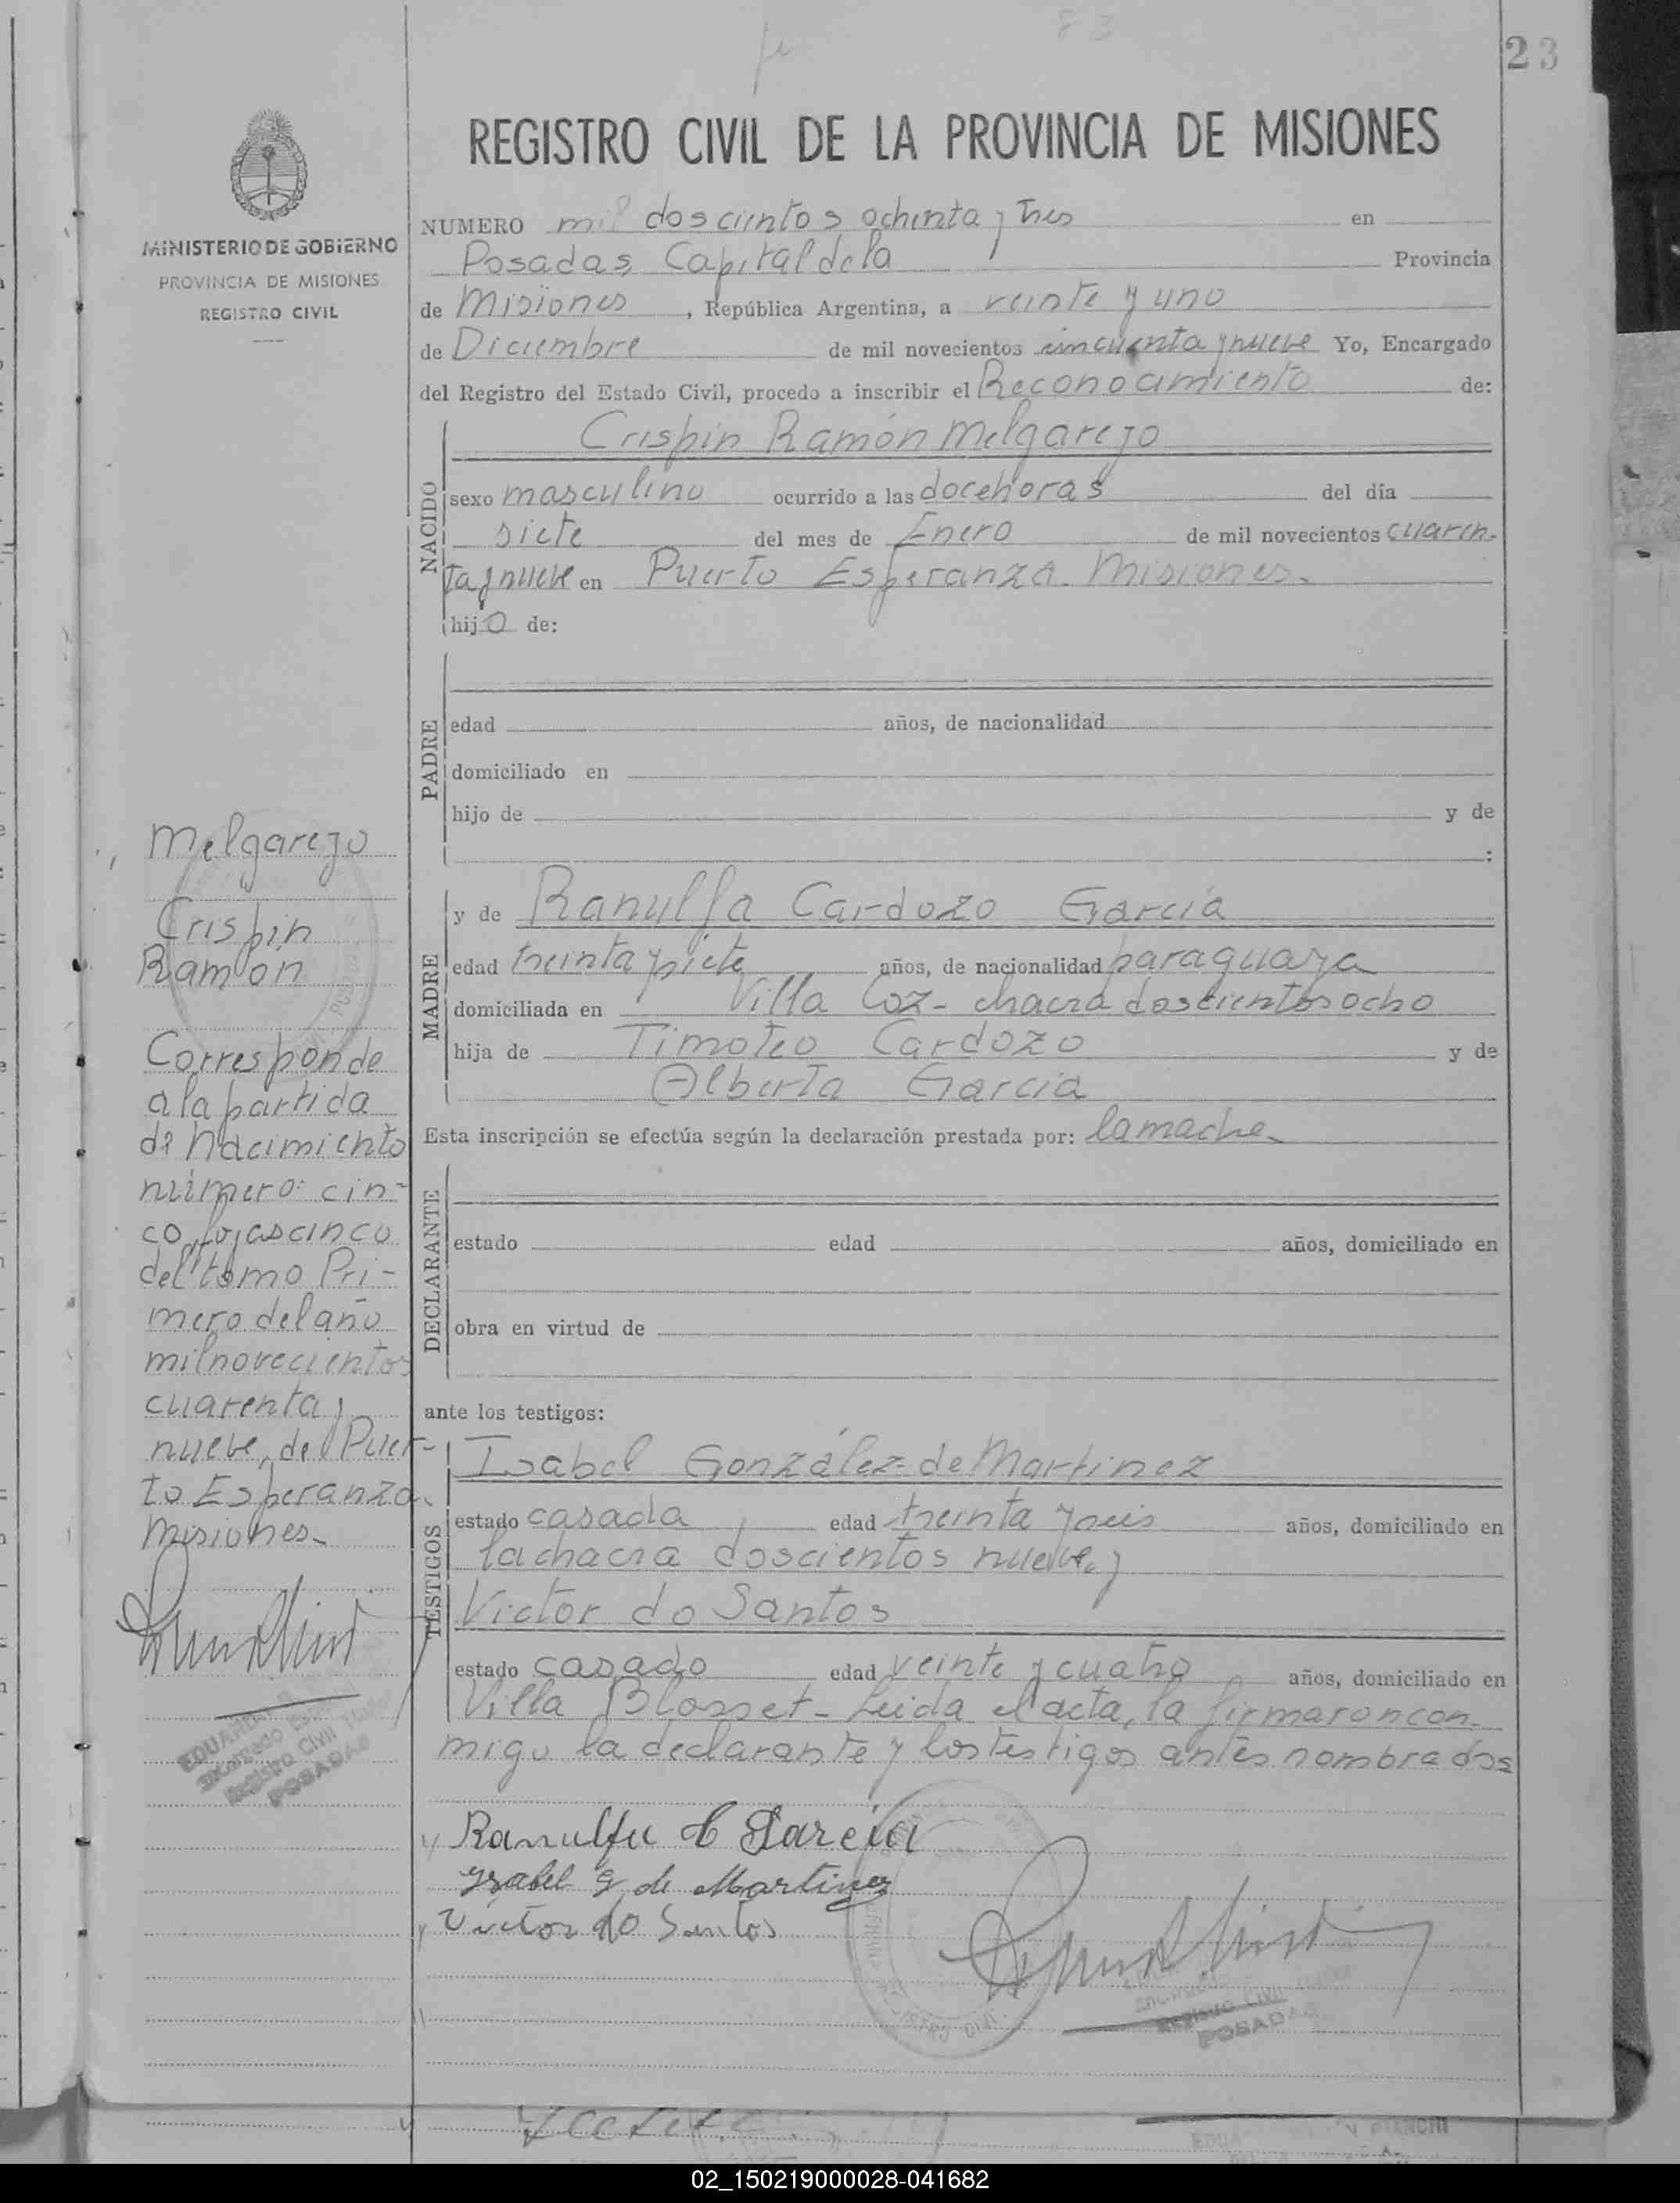 23
REGISTRO CIVIL DE LA PROVINCIA DE MISIONES
MINISTERIO DE GOBIERNO
PROVINCIA DE MISIONES
REGISTRO CIVIL
NUMERO mil doscientos ochenta y tres en
Posadas, Capital de la Provincia
de Misiones, República Argentina, a veinte y uno
de Diciembre de mil novecientos cincuenta y nueve Yo, Encargado
del Registro del Estado Civil, procedo a inscribir el Reconocimiento de:
NACIDO
Crispin Ramón Melgarejo
sexo masculino ocurrido a las doce horas del día
siete del mes de Enero de mil novecientos cuaren-
ta y nueve en Puerto Esperanza. Misiones.
hijo de:
PADRE
edad años, de nacionalidad
domiciliado en
hijo de y de
:
MADRE
y de Ranulfa Cardozo García
edad treinta y siete años, de nacionalidad paraguaya
domiciliada en Villa Coz - chacra doscientos ocho
hija de Timoteo Cardozo y de
Alberta García
Esta inscripción se efectúa según la declaración prestada por: la madre.
DECLARANTE
estado edad años, domiciliado en
obra en virtud de
ante los testigos:
TESTIGOS
Isabel González de Martinez
estado casada, edad treinta y seis años, domiciliado en
la chacra doscientos nueve, y
Victor do Santos
estado casado edad veinte y cuatro años, domiciliado en
Villa Blosset - Leida el acta, la firmaron con-
migo la declarante y los testigos antes nombrados
Ranulfa C Garcia
Ysabel G de Martinez
Victor do Santos
REGISTRO CIVIL
POSADAS
Melgarejo
Crispin
Ramón
Corresponde
a la partida
de nacimiento
número: cin-
co, fojas cinco
del tomo Pri-
mero del año
mil novecientos
cuarenta y
nueve, de Puer-
to Esperanza.
Misiones.
Encargado
Registro Civil
POSADAS
02_150219000028-041682